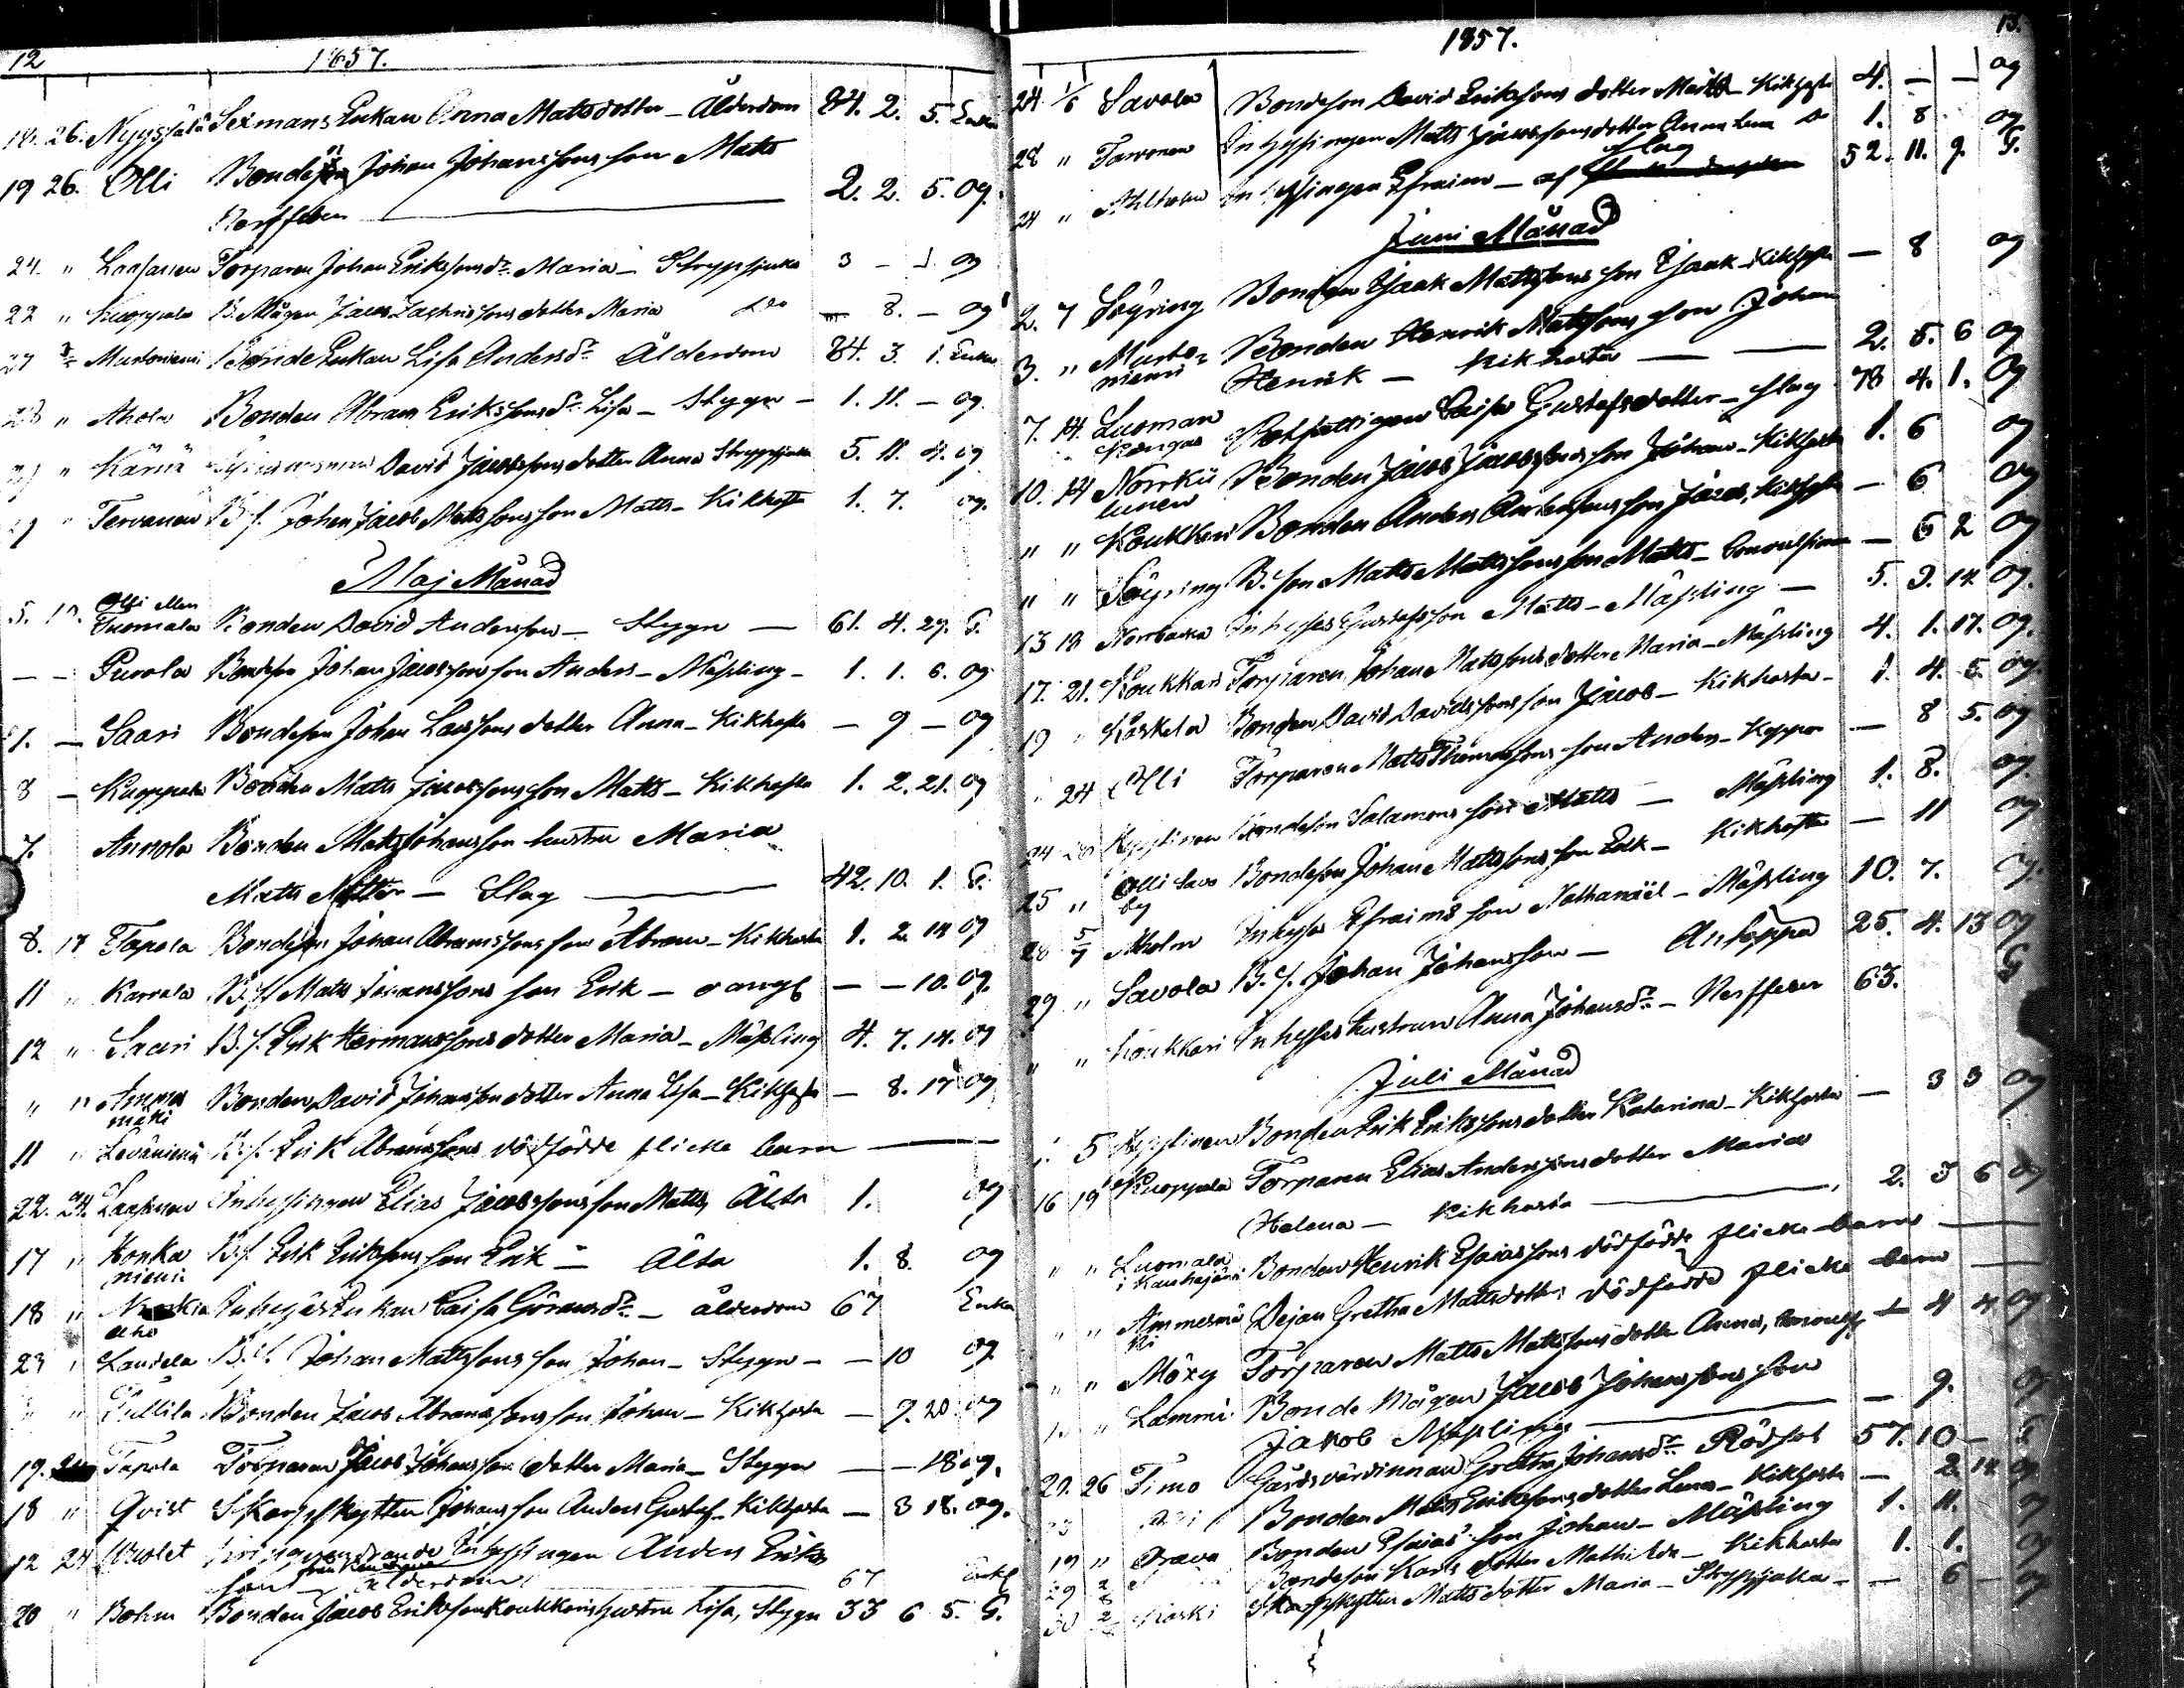 12
1857.
18. 26. Nygård Sexmans Enkan Anna Matsdotter - Ålderdom 84. 2. 5. Enka
19 26. Olli Bondesn Johan Johanssons son Matts
Nerffeber 2. 2. 5. og.
24. " Laasanen Torparen Johan Erikssons dr. Maria - Strypsjuka 3 - og
22 " Kuoppala B. Mågen Jacob Zachrissons dotter Maria do - 8. - og
27 Murtoniemi Bonde Enkan Lisa Andersdr Ålderdom 84. 3. 1. Enka
28 " Ahola Bonden Abram Erikssons dr. Lisa - Stygn - 1. 11. - og.
" Kärnä David Jacobssons dotter Anna Strypsjuka 5. 11. 4. og
29 " Tervanen B. s. Johan Jacob Mattssons son Matts - Kikhosta 1. 7. og.
Maj Månad
Olli
5. 10. Tuomala Bonden David Andersson - Stygn - 61. 4. 29. G.
- - Puvola Bondeson Johan Jacobssons son Anders - Mässling - 1. 1. 6. og
- Saari Bondeson Johan Larssons dotter Anna - Kikhosta - 9 - og
8 - Kuoppala Bonden Matts Jacobssons son Matts - Kikhosta 1. 2. 21. og
7. Annola Bonden Matts Johansson hustru Maria
Matts dotter - Slag 42. 10. 1. G.
8. 17 Tapola Bondeson Johan Abramssons son Abram - Kikhosta 1. 2. 14 og
11 " Karvala B. s. Matts Johanssons son Erik - oangf - - 10. og.
12 " Saari B. s. Erik Hermanssons dotter Maria - Mässling 4. 7. 14. og
" " Ammes Bonden David Johansson dotter Anna Lisa - Kikhosta - 8. 17 og
mäki
11 " Leväniemi B. s. Erik Abramssons dödfödde flicke barn
22. 24. Laasanen Inhysingen Elias Jacobssons son Matts, Älta 1. og
17 " Konka B. s. Erik Erikssons son Erik - Älta 1. 8. og
niemi
18 " Inhyses Enkan Caisa Göransdr - ålderdom 67 Enka
aho
23 " Lautela B. s. Johan Mattssons son Johan - Stygn - - 10 og
" " Pullila Bonden Jacob Abramssons son Johan - Kikhosta - 9. 20. og
19. Tapola Torparen Jacob Johansson dotter Maria - Stygn - - 18 og.
18 " Qvist Skarpskytten Johansson Anders Gustaf - Kikhosta - 3 18. og.
12 24 kringvandrande Inhysingen Anders Eriks
son - ålderdom 67 Enkl
20 " Bohm Bonden Jacob Eriksson Koukkaris hustru Lisa, Stygn 33 6 5. G.
13.
1857.
24 1/6 Savola Bondeson David Erikssons dotter Maria - Kikhosta 4. - - og
28 " Tarvonen Inhysingen Matts Jacobssons dotter Anna Lena Do 1. 8 og
24 " Ahlholm Inhysingen Efraim - af slag 52. 11. 9. G.
Juni Månad
2. 7 Söyring Bonden Isaak Mattssons son Isaak - Kikhosta - 8 og
3. " Murto= Bonden Henrik Matssons son Johan
niemi Henrik - Kikhosta 2. 5. 6 og
7. 14. Luoman Rotfattigen Caisa Gustafsdotter - slag 78 4. 1. Og
kangas
10. 14 Norrkii Bonden Jacob Jacobssons son Johan - Kikhosta 1. 6 og
lunen
" " Koukkari Bonden Anders Anderssons son Jacob, Kikhosta - 6 og
" " Söyring B. son Matts Mattssons son Matts - Convulsioner - 6 2 og
13 18 Norrbacka Inhyses Gustafs son Matts - Mässling - 5. 9. 14 og.
17. 21. Koukkari Torparen Johan Matssons dotter Maria - Mässling 4. 1. 17. og.
19 " Kaskela Bonden David Davidssons son Jacob - Kikhosta - 1. 4. 5. og.
" 24 Olli Torparen Matts Thomassons son Anders - Koppor - 8 5. og
24 28 Kyylinen Bondeson Salamons son Matts - Mässling 1. 8. og.
25 " Olli Savo Bondeson Johan Mattssons son Erik - Kikhosta - 11 og
by
28 5/7 Ahlholm Inhyses Efraims son Nathanäel - Mässling 10. 7. og.
29 " Savola B. s. Johan Johansson - 25. 4. 13 og
" " Koukkari Inhyses hustrun Anna Johansdr - Nerffeber 63. G
Juli Månad
5 Kyylinen Bonden Erik Erikssons dotter Katarina - Kikhosta - 3 3 og
16 19 Kuoppala Torparen Elias Anderssons dotter Maria
Helena - Kikhosta 2. 3 6 og
" " Luomala Bonden Henrik Esaiassons dödfödde flicke barn
i Kauhajärvi
" " Ammesmä Pejan Gretha Mattsdotters dödfödde flicke barn
ki
" " Möxy Torparen Matts Mattssons dotter Anna, Convuls - 4 4 og
" Lammi Bonde Mågen Jacob Johanssons son
Jakob Mässling - 9. og
20. 26 Timo Gårdsvärdinnan Gretha Johansdr Rödsot 57. 10 - G
Bonden Matts Erikssons dotter Lena - Kikhosta - 2. 14 og
19 " Orava Bonden Esaias son Johan - Mässling 1. 11. og
29 Bondeson Karls dotter Mathilda - Kikhosta 1. 1. og
30 Koski Skarpskytten Matts dotter Maria - Strypsjuka - - 6 - og